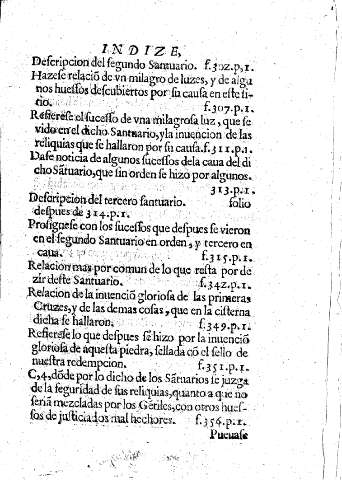 INDIZE,
Descripcion del segundo Santuario. f.302.p,1.
Hazese relaciõ de vn milagro de luzes, y de algu
nos huessos descubiertos por su causa en este si-
tio. f.307.p.1.
Refierese el sucesso de vna milagrosa luz, que se
vido en el dicho Santuario, y la inuencion de las
reliquias que se hallaron por su causa. f.311.p.1.
Dase noticia de algunos sucessos de la caua del di
cho Sãtuario, que sin orden se hizo por algunos.
313.p.1.
Descripcion del tercero santuario. folio
despues de 314.p.1.
Prosiguese con los sucessos que despues se vieron
en el segundo Santuario en orden, y tercero en
caua. f.315.p.1.
Relacion mas por comun de lo que resta por de
zir deste Santuario. f.342.p.1.
Relacion de la inuenciõ gloriosa de las primeras
Cruzes, y de las demas cosas, que en la cisterna
dicha se hallaron. f.349.p.1.
Refierese lo que despues se hizo por la inuenciõ
gloriosa de aquesta piedra, sellada cõ el sello de
nuestra redempcion. f.351.p.1.
C,4, dõde por lo dicho de los Sãtuarios se juzga
de la seguridad de sus reliquias, quanto a que no
seriã mezcladas por los Gẽtiles, con otros hues-
sos de justiciados mal hechores. f.356.p.1.
Pueuase